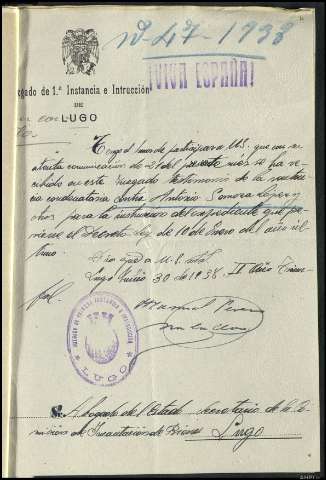 nº 47-1938
¡VIVA ESPAÑA!
gado de 1.ª Instancia e Intrucción
DE
LUGO
Tengo el honor de participar a V.S. que con su
atenta comunicación de 21 del presente mes se ha re-
cibido en este Juzgado testimonio de la sentencia
condenatoria contra Antonio Somoza López y
otros para la instrucción del expediente que pre-
viene el Decreto-ley de 10 de Enero del año úl-
timo.
Dios guarde a V.S. 
Lugo Junio 30 de 1938. II Año Triun-
fal.
Manuel
JUZGADO DE PRIMERA INSTANCIA E INSTRUCCIÓN
LUGO
Sr. Abogado del Estado Secretario de la Co-
misión de Incautación de Bienes Lugo